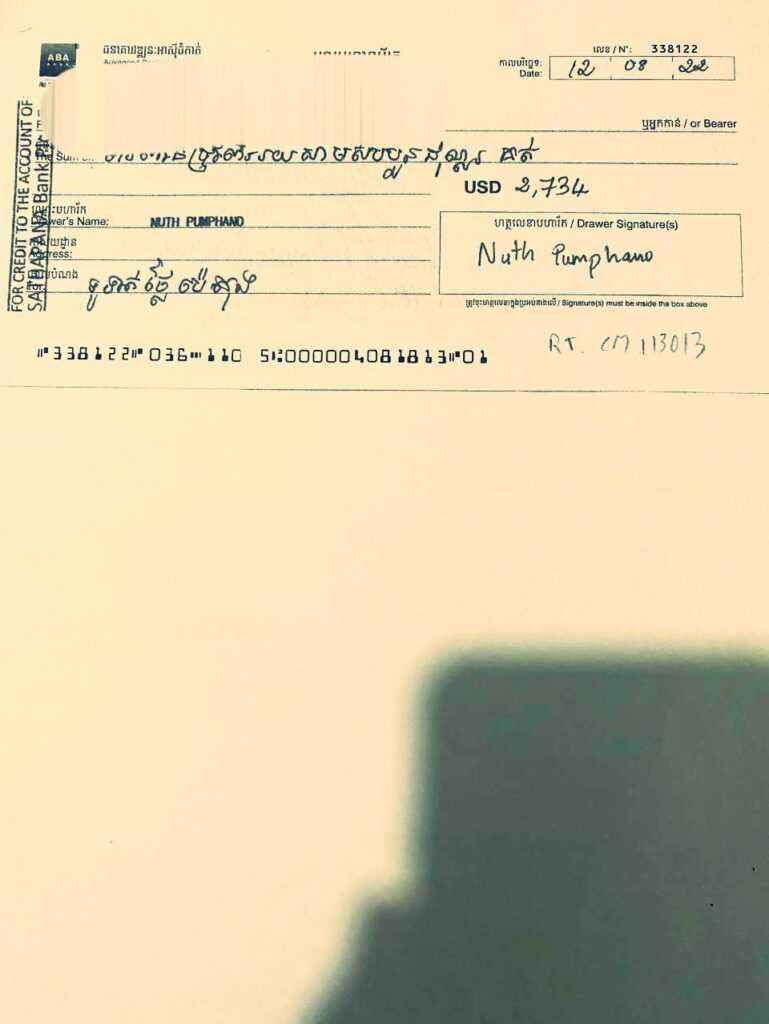 ABA
ធនាគារវឌ្ឍនៈអាស៊ីចំកាត់
លេខ / N°: 338122
កាលបរិច្ឆេទ:
Date: 12 08 22
ឬអ្នកកាន់ / or Bearer
The Sum
USD 2,734
ឈ្មោះបេហារីក
wer's Name: NUTH PUMPHANO
អាសយដ្ឋាន
Address:
ហត្ថលេខាបេហារីក / Drawer Signature(s)
Nuth Pumphano
ត្រូវចុះហត្ថលេខាក្នុងប្រអប់ខាងលើ / Signature(s) must be inside the box above
⑈338122⑈036⑉110 5⑆00000408181 3⑈01
RT. CM 113013
FOR CREDIT TO THE ACCOUNT OF:
SATHAPANA Bank Plc